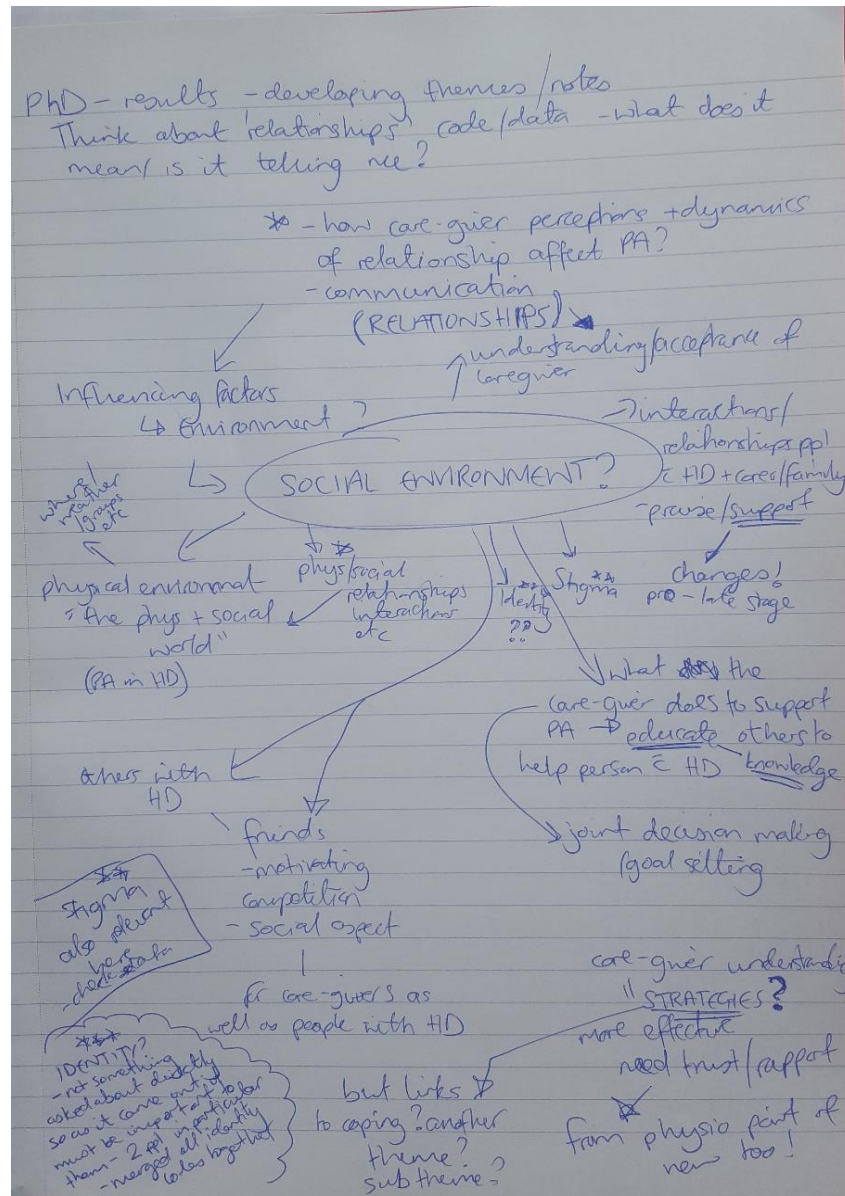 PhD - results - developing themes/notes
Think about 'relationships' code/data - what does it
mean/ is it telling me?
* - how care-giver perceptions + dynamics
of relationship affect PA?
- communication
(RELATIONSHIPS)
understanding/acceptance of
caregiver
Influencing factors
↳ Environment?
SOCIAL ENVIRONMENT?
→ interactions/
relationships ppl
c̄ HD + cares/family
- praise/support
changes!
pro - late stage
where/
weather
/groups
etc
physical environment
"the phys + social
world"
(PA in HD)
*
phys/social
relationships
interactions
etc
***
Identity
??
**
Stigma
what the
care-giver does to support
PA → educate others to
help person c̄ HD knowledge
joint decision making
/goal setting
others with
HD
friends
- motivating
competition
- social aspect
for care-givers as
well as people with HD
**
Stigma
also relevant
here
- check data
***
IDENTITY?
- not something
asked about directly
so as it came out it
must be important to
them - 2 ppl in particular
- merged all identity
codes together
care-giver understanding
" STRATEGIES?
more effective
need trust/rapport
from physio point of
view too!
but links
to coping? another
theme?
subtheme?